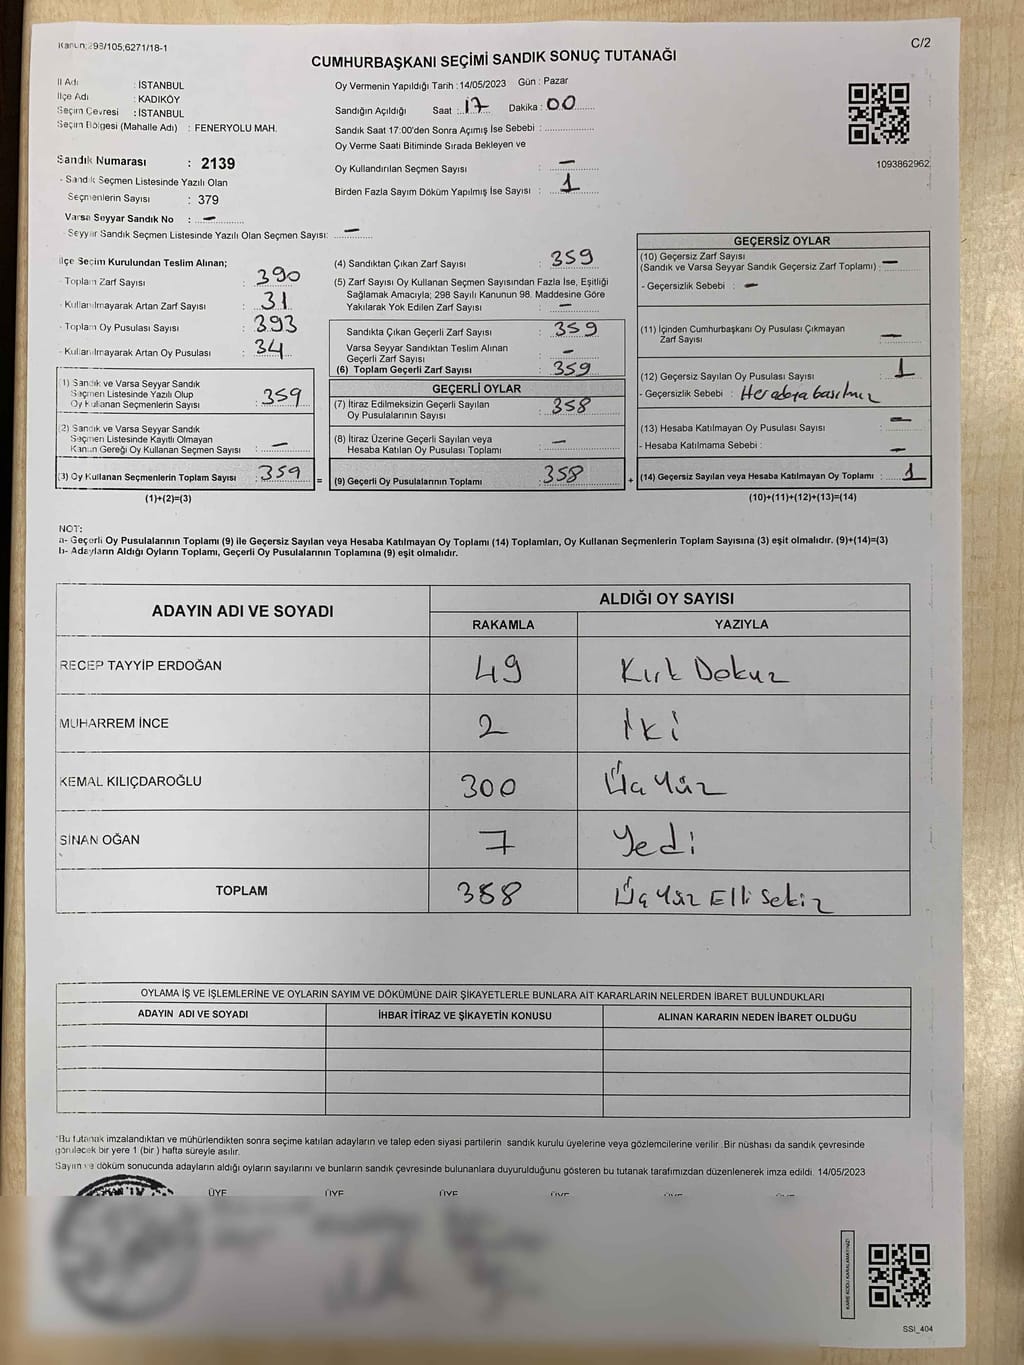 Kanun;298/105;6271/18-1
C/2
CUMHURBAŞKANI SEÇİMİ SANDIK SONUÇ TUTANAĞI
İl Adı : İSTANBUL
İlçe Adı : KADIKÖY
Seçim Çevresi : İSTANBUL
Seçim Bölgesi (Mahalle Adı) : FENERYOLU MAH.
Sandık Numarası : 2139
- Sandık Seçmen Listesinde Yazılı Olan
Seçmenlerin Sayısı : 379
Varsa Seyyar Sandık No : —
- Seyyar Sandık Seçmen Listesinde Yazılı Olan Seçmen Sayısı: —
Oy Vermenin Yapıldığı Tarih : 14/05/2023 Gün : Pazar
Sandığın Açıldığı Saat : 17 Dakika : 00
Sandık Saat 17:00'den Sonra Açımış İse Sebebi :
Oy Verme Saati Bitiminde Sırada Bekleyen ve
Oy Kullandırılan Seçmen Sayısı : —
Birden Fazla Sayım Döküm Yapılmış İse Sayısı : 1
1093862962
İlçe Seçim Kurulundan Teslim Alınan;
- Toplam Zarf Sayısı : 390
- Kullanılmayarak Artan Zarf Sayısı : 31
- Toplam Oy Pusulası Sayısı : 393
- Kullanılmayarak Artan Oy Pusulası : 34
(1) Sandık ve Varsa Seyyar Sandık
Seçmen Listesinde Yazılı Olup
Oy Kullanan Seçmenlerin Sayısı : 359
(2) Sandık ve Varsa Seyyar Sandık
Seçmen Listesinde Kayıtlı Olmayan
Kanun Gereği Oy Kullanan Seçmen Sayısı : —
(3) Oy Kullanan Seçmenlerin Toplam Sayısı : 359
(1)+(2)=(3)
=
(4) Sandıktan Çıkan Zarf Sayısı : 359
(5) Zarf Sayısı Oy Kullanan Seçmen Sayısından Fazla İse, Eşitliği
Sağlamak Amacıyla; 298 Sayılı Kanunun 98. Maddesine Göre
Yakılarak Yok Edilen Zarf Sayısı : —
Sandıkta Çıkan Geçerli Zarf Sayısı : 359
Varsa Seyyar Sandıktan Teslim Alınan
Geçerli Zarf Sayısı : —
(6) Toplam Geçerli Zarf Sayısı : 359
GEÇERLİ OYLAR
(7) İtiraz Edilmeksizin Geçerli Sayılan
Oy Pusulalarının Sayısı : 358
(8) İtiraz Üzerine Geçerli Sayılan veya
Hesaba Katılan Oy Pusulası Toplamı : —
(9) Geçerli Oy Pusulalarının Toplamı : 358
+
GEÇERSİZ OYLAR
(10) Geçersiz Zarf Sayısı
(Sandık ve Varsa Seyyar Sandık Geçersiz Zarf Toplamı) : —
- Geçersizlik Sebebi : —
(11) İçinden Cumhurbaşkanı Oy Pusulası Çıkmayan
Zarf Sayısı : —
(12) Geçersiz Sayılan Oy Pusulası Sayısı : 1
- Geçersizlik Sebebi :
(13) Hesaba Katılmayan Oy Pusulası Sayısı : —
- Hesaba Katılmama Sebebi : —
(14) Geçersiz Sayılan veya Hesaba Katılmayan Oy Toplamı : 1
(10)+(11)+(12)+(13)=(14)
NOT:
a- Geçerli Oy Pusulalarının Toplamı (9) ile Geçersiz Sayılan veya Hesaba Katılmayan Oy Toplamı (14) Toplamları, Oy Kullanan Seçmenlerin Toplam Sayısına (3) eşit olmalıdır. (9)+(14)=(3)
b- Adayların Aldığı Oyların Toplamı, Geçerli Oy Pusulalarının Toplamına (9) eşit olmalıdır.
ADAYIN ADI VE SOYADI
ALDIĞI OY SAYISI
RAKAMLA YAZIYLA
RECEP TAYYİP ERDOĞAN 49 Kırk Dokuz
MUHARREM İNCE 2 İki
KEMAL KILIÇDAROĞLU 300 Üç Yüz
SİNAN OĞAN 7 Yedi
TOPLAM 358 Üç Yüz Elli Sekiz
OYLAMA İŞ VE İŞLEMLERİNE VE OYLARIN SAYIM VE DÖKÜMÜNE DAİR ŞİKAYETLERLE BUNLARA AİT KARARLARIN NELERDEN İBARET BULUNDUKLARI
ADAYIN ADI VE SOYADI İHBAR İTİRAZ VE ŞİKAYETİN KONUSU ALINAN KARARIN NEDEN İBARET OLDUĞU
*Bu tutanak imzalandıktan ve mühürlendikten sonra seçime katılan adayların ve talep eden siyasi partilerin sandık kurulu üyelerine veya gözlemcilerine verilir .Bir nüshası da sandık çevresinde
görülecek bir yere 1 (bir ) hafta süreyle asılır.
Sayım ve döküm sonucunda adayların aldığı oyların sayılarını ve bunların sandık çevresinde bulunanlara duyurulduğunu gösteren bu tutanak tarafımızdan düzenlenerek imza edildi. 14/05/2023
ÜYE ÜYE ÜYE ÜYE ÜYE ÜYE
KARE KODU KARALAMAYINIZ!
SSI_404